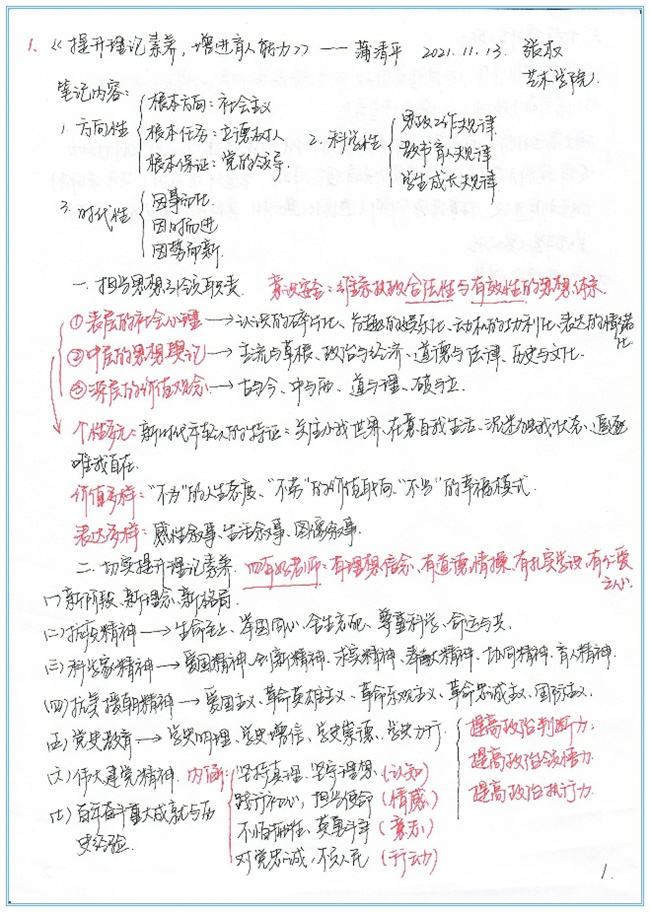 1.《提升理论素养,增进育人能力》—— 蒲清平 2021.11.13. 张权
艺术学院
笔记内容:
1. 方向性 根本方向:社会主义
根本任务:立德树人
根本保证:党的领导.
2. 科学性 思政工作规律
教书育人规律
学生成长规律
3. 时代性 因事而化
因时而进
因势而新.
一. 担当思想引领职责. 意识安全:维系执政合法性与有效性的思想体系
①表层的社会心理 → 认识的碎片化、价值的娱乐化、动机的功利化、表达的情绪化.
②中层的思想舆论 → 主流与草根、政治与经济、道德与法律、历史与文化.
③深层的价值观念 → 古与今、中与西、道与理、破与立.
个性多元:新时代年轻人的特征:关注小我世界、在意自我生活、沉迷 状态、追逐
唯我自在.
价值多样:“ ”的人生态度、“ ”的价值取向、“ ”的幸福模式.
表达多样:感性叙事、生活叙事、图像叙事.
二. 切实提升理论素养. 四有好老师:有理想信念、有道德情操、有扎实学识、有仁爱之心.
(一)新阶段、新理念、新格局.
(二)抗疫精神 → 生命至上、举国同心、舍生忘死、尊重科学、命运与共.
(三)科学家精神 → 爱国精神、创新精神、求实精神、奉献精神、协同精神、育人精神.
(四)抗美援朝精神 → 爱国主义、革命英雄主义、革命乐观主义、革命忠诚主义、国际主义.
(五)党史教育 → 学史明理、学史增信、学史崇德、学史力行.
提高政治判断力.
提高政治领悟力
提高政治执行力.
(六)伟大建党精神. 内涵: 坚持真理、坚守理想 (认知)
践行初心、担当使命 (情感)
不怕牺牲、英勇斗争 (意志)
对党忠诚、不负人民 (行动)
(七)百年奋斗重大成就与历
史经验.
1.